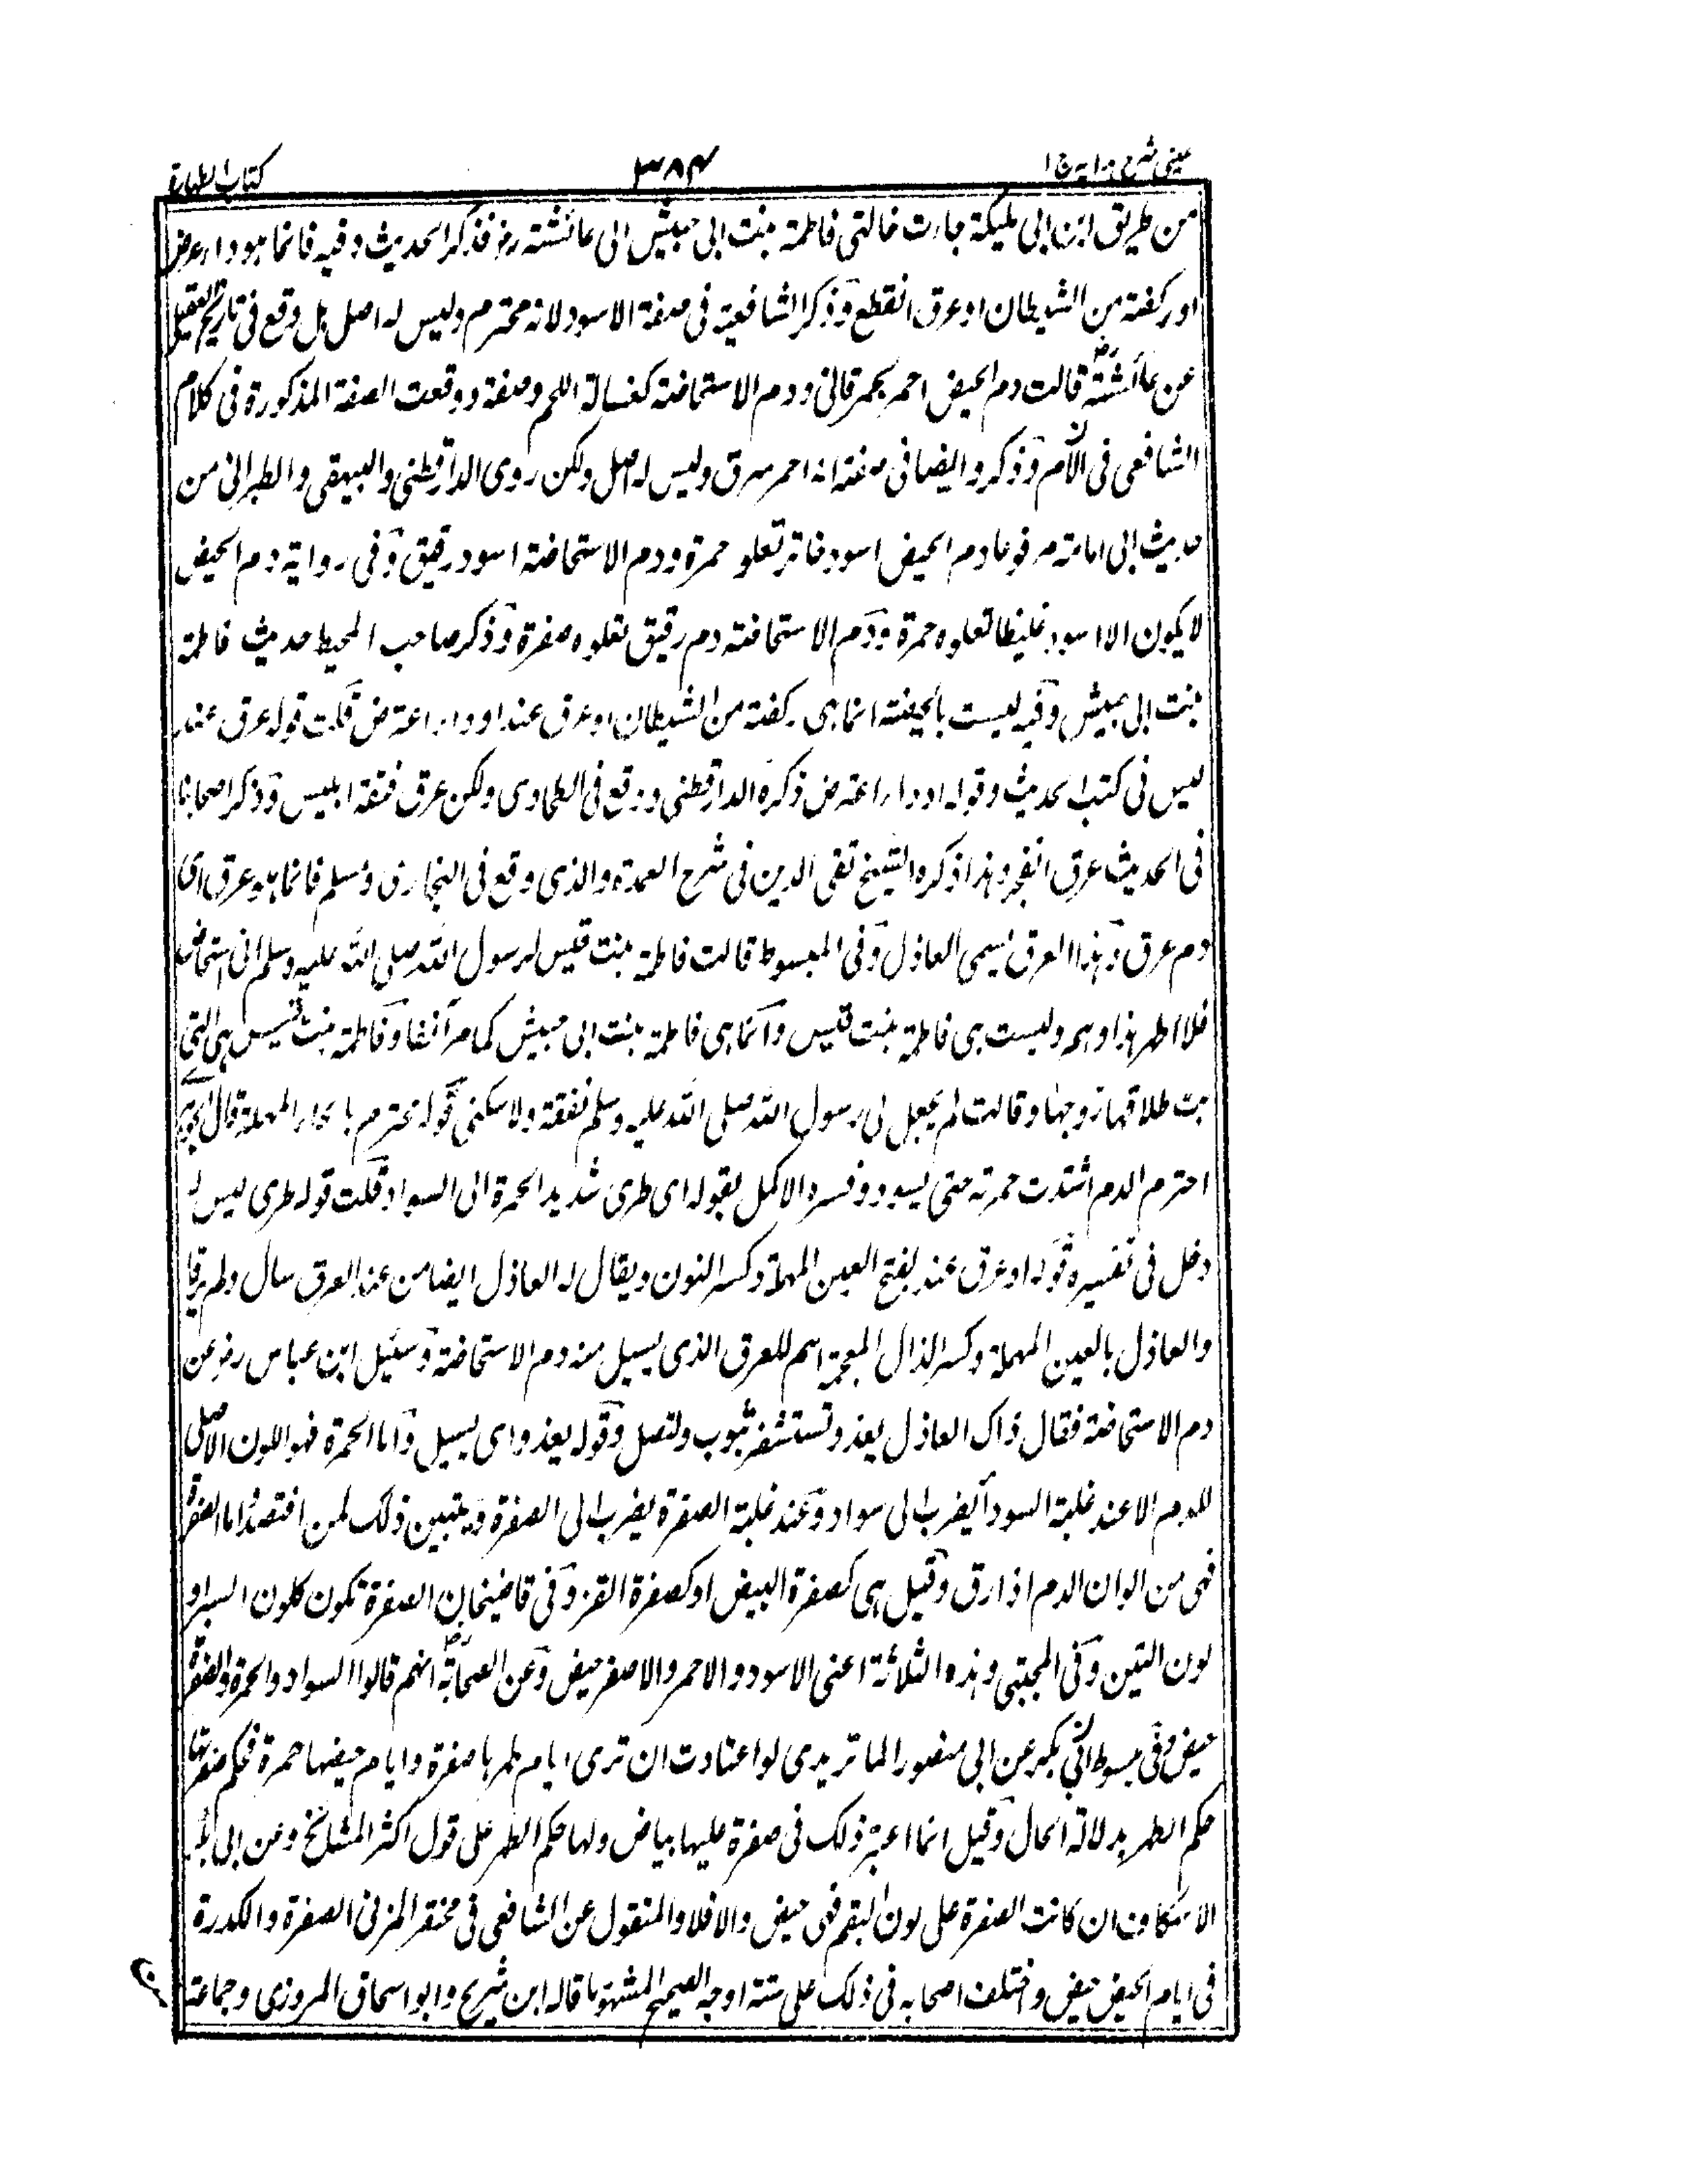 عینی شرح ہدایہ ج ١
٣٨٤
کتاب الطهارة
من طريق ابن ابى مليكة جاءت خالتى فاطمة بنت ابى حبيش الى عائشة رضـ فذكر الحديث وفيه فانما هو داء عرض
او ركضة من الشيطان او عرق انقطع وذكر الشافعية فى صفة الاسود لانه محترم وليس له اصل بل وقع فى تاريخ العقيلى
عن عائشة رضـ قالت دم الحيض احمر بحرانى ودم الاستحاضة كغسالة اللحم وصفة ووقعت الصفة المذكورة فى كلام
الشافعى فى الام وذكروا ايضا فى صفته انه احمر مرق وليس له اصل ولكن روى الدارقطنى والبيهقى والطبرانى من
حديث ابى امامة مرفوعا دم الحيض اسود خاثر تعلوه حمرة ودم الاستحاضة اسود رقيق وفى رواية دم الحيض
لا يكون الا اسود غليظا تعلوه حمرة ودم الاستحاضة دم رقيق تعلوه صفرة وذكر صاحب المحيط حديث فاطمة
بنت ابى حبيش وفيه ليست بالحيضة انما هى ركضة من الشيطان او عرق عند او داء اعترض قلت قوله عرق عند
ليس فى كتب الحديث وقوله او داء اعترض ذكره الدارقطنى ووقع فى الطحاوى ولكن عرق فتقه ابليس وذكر اصحابنا
فى الحديث عرق انفجر وهذا ذكره الشيخ تقى الدين فى شرح العمدة والذى وقع فى البخارى ومسلم فانما هو عرق اى
دم عرق وهذا العرق يسمى العاذل وفى المبسوط قالت فاطمة بنت قيس لرسول الله صلى الله عليه وسلم انى استحاض
فلا اطهر هذا وهم وليست هى فاطمة بنت قيس وانما هى فاطمة بنت ابى حبيش كما مر آنفا وفاطمة بنت قيس هى التى
بت طلاقها زوجها وقالت لم يجعل لى رسول الله صلى الله عليه وسلم نفقة ولا سكنى قوله محترم بالحاء المهملة قال
احترم الدم اشتدت حمرته حتى يسود وفسره الاكمل بقوله اى طرى شديد الحمرة الى السواد قلت قوله طرى ليس له
دخل فى تفسيره قوله او عرق عند بفتح العين المهملة وكسر النون ويقال له العاذل ايضا من عند العرق سال ولم يرقا
والعاذل بالعين المهملة وكسر الذال المعجمة اسم للعرق الذى يسيل منه دم الاستحاضة وسئيل ابن عباس رضـ عن
دم الاستحاضة فقال ذاك العاذل يغذو تستثفر بثوب ولتصل وقوله يغذو اى يسيل واما الحمرة فهو اللون الاصلى
للدم الا عند غلبة السوداء يضرب الى سواد وعند غلبة الصفرة يضرب الى الصفرة ويتبين ذلك لمن افتصد واما الصفرة
فهى من الوان الدم اذا رق وقيل هى كصفرة البيض او كصفرة القز وفى قاضيخان الصفرة تكون كلون البسر او
لون التبن وفى المجتبى وهذه الثلاثة اعنى الاسود والاحمر والاصفر حيض وعن الصحابة رضـ انهم قالوا السواد والحمرة والصفرة
حيض وفى مبسوط ابى بكر عن ابى منصور الماتريدى لو اعتادت ان ترى ايام طهرها صفرة وايام حيضها حمرة فحكم صفرتها
حكم الطهر بدلالة الحال وقيل انما اعتبر ذلك فى صفرة عليها بياض ولها حكم الطهر على قول اكثر المشائخ وعن ابى بكر
الاسكاف ان كانت الصفرة على لون البقم فهى حيض والا فلا والمنقول عن الشافعى فى مختصر المزنى الصفرة والكدرة
فى ايام الحيض حيض واختلف اصحابه فى ذلك على ستة اوجه الصحيح المشهور ما قاله ابن شريح وابو اسحاق المروزى وجماعة